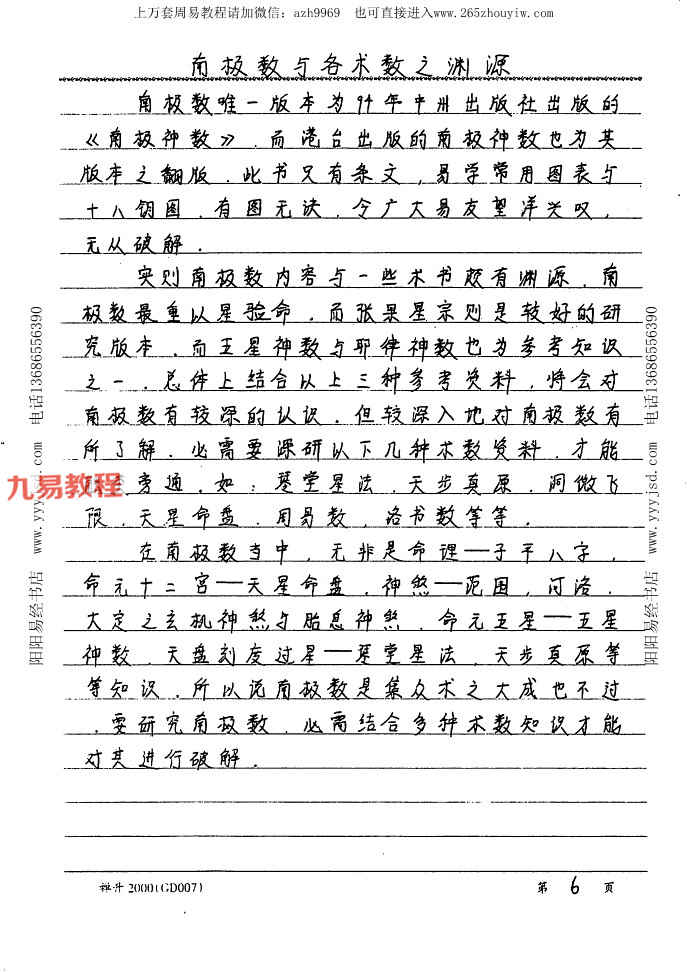 上万套周易教程请加微信：azh9969 也可直接进入www.265zhouyiw.com
南极数与各术数之渊源
南极数唯一版本为94年中州出版社出版的
《南极神数》.而港台出版的南极神数也为其
版本之翻版.此书只有条文,易学常用图表与
十八钥图.有图无诀.令广大易友望洋兴叹,
无从破解.
实则南极数内容与一些术书颇有渊源.南
极数最重以星验命.而张果星宗则是较好的研
究版本.而五星神数与耶律神数也为参考知识
之一.总体上结合以上三种参考资料,将会对
南极数有较深的认识.但较深入地对南极数有
所了解.必需要深研以下几种术数资料.才能
旁通.如:琴堂星法.天步真原.洞微飞
限.天星命盘.周易数,洛书数等等.
在南极数当中,无非是命理——子平八字,
命元十二宫——天星命盘.神煞——范围,河洛.
大定之玄机神煞与胎息神煞.命元五星——五星
神数.天盘刻度过星——琴堂星法,天步真原等
等知识.所以说南极数是集众术之大成也不过
.要研究南极数.必需结合多种术数知识才能
对其进行破解.
九易教程
阳阳易经书店 www.yyyjsd.com 电话13686556390
阳阳易经书店 www.yyyjsd.com 电话13686556390
2000(GD007)
第 6 页